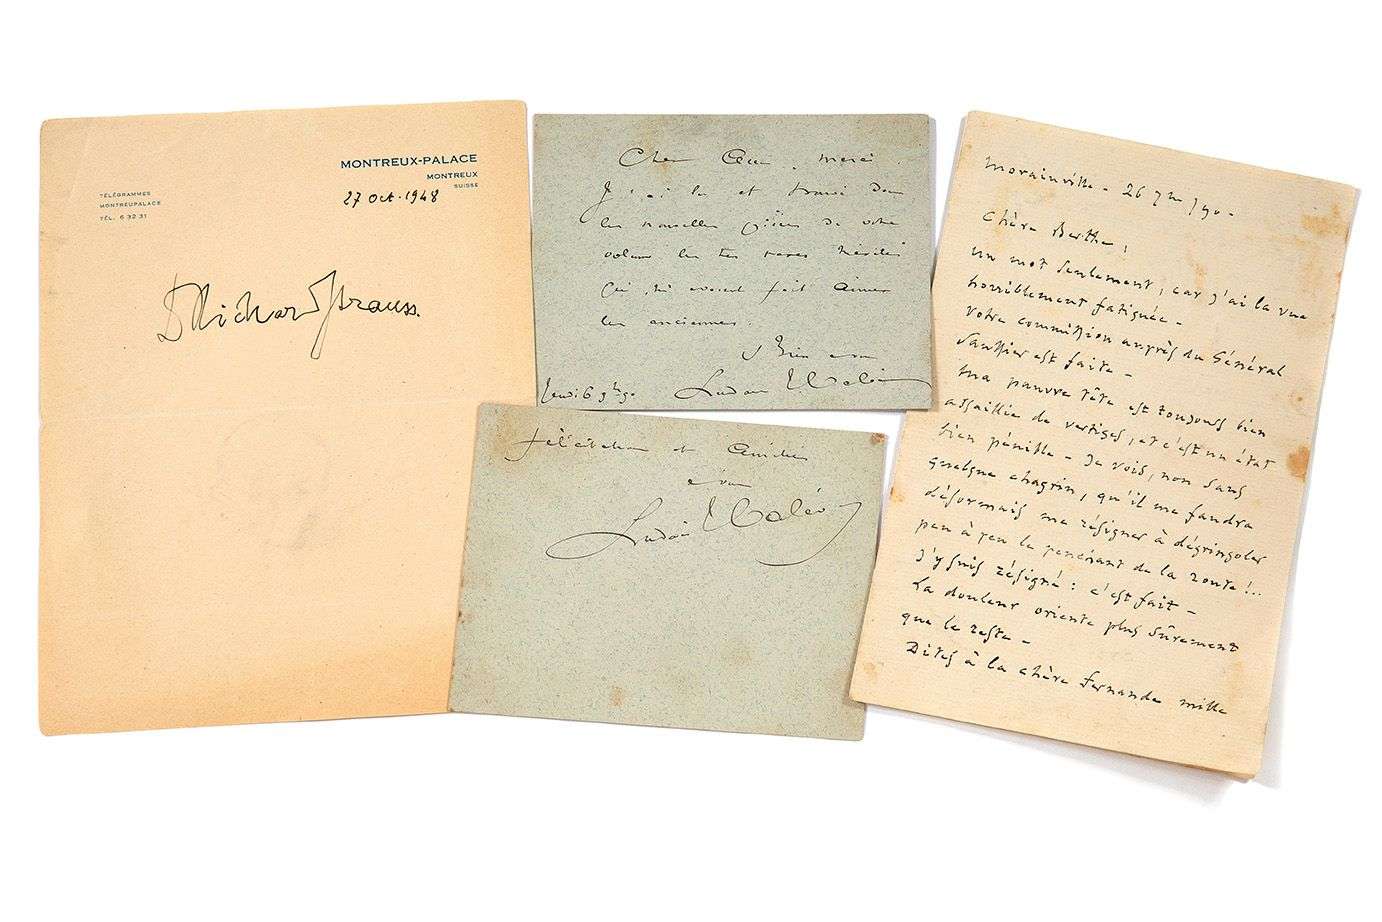 MONTREUX-PALACE
MONTREUX
SUISSE
TÉLÉGRAMMES
MONTREUPALACE
TÉL. 6 32 31
27 Oct. 1948
D Richard Strauss.
Cher Ami, merci.
J'ai lu et trouvé dans
les nouvelles pièces de votre
volume les très rares
qui m'avaient fait aimer
les anciennes.
Bien à vous
Jeudi 6 9bre 90 Ludovic Halévy
félicitations et amitiés
à vous
Ludovic Halévy
Morainville - 26 7bre / 90 -
Chère Berthe :
un mot seulement, car j'ai la vue
horriblement fatiguée -
votre commission auprès du Général
Saussier est faite -
ma pauvre tête est toujours bien
assaillie de vertiges, et c'est un état
bien pénible - Je vois, non sans
quelque chagrin, qu'il me faudra
désormais me résigner à dégringoler
peu à peu le penchant de la route !..
J'y suis résigné : c'est fait -
La douleur oriente plus sûrement
que le reste -
Dites à la chère Fernande mille